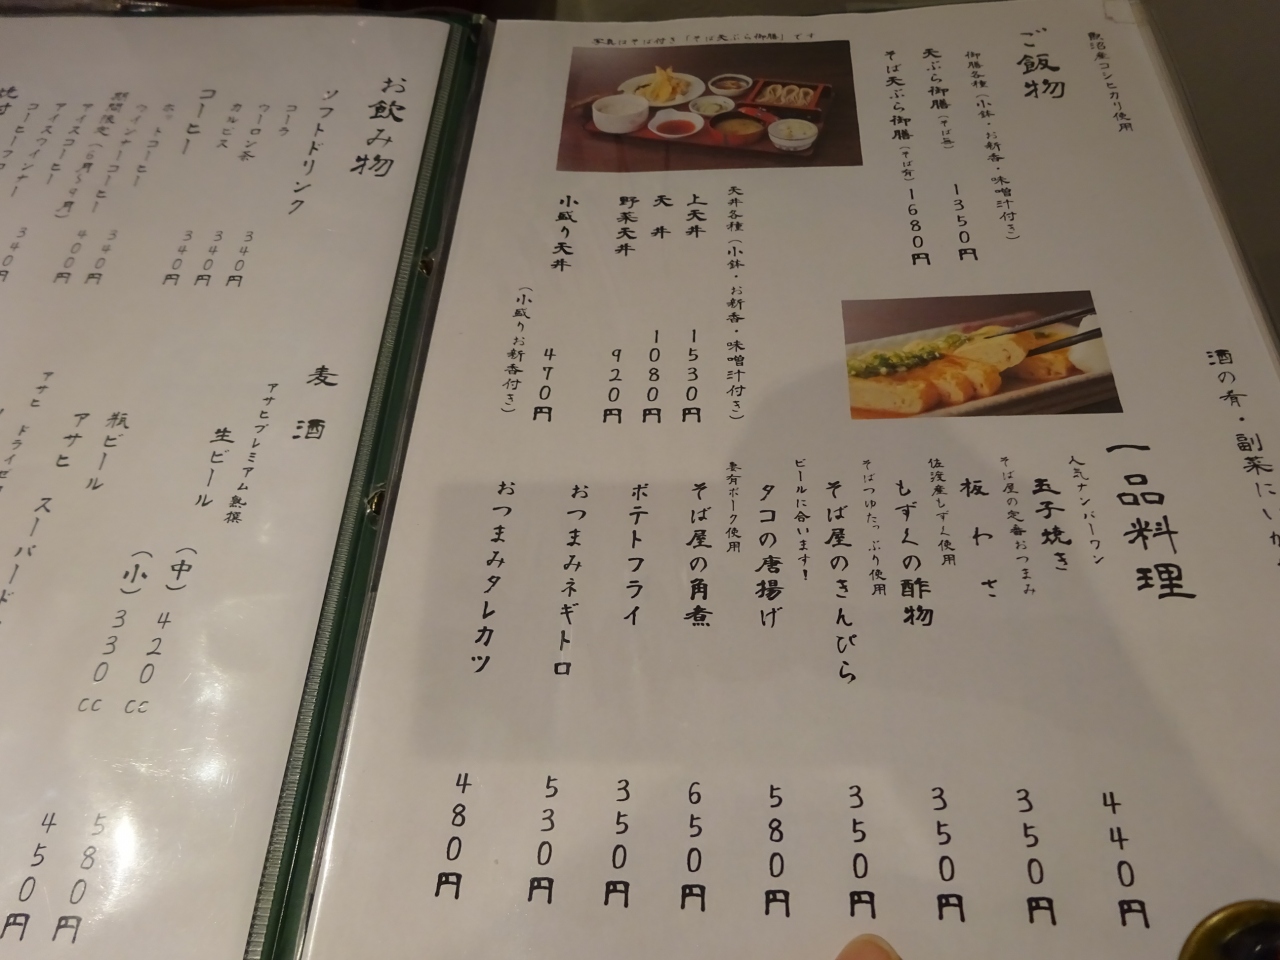 魚沼産コシヒカリ使用
ご飯物
御膳各種(小鉢・お新香・味噌汁付き)
天ぷら御膳(そば無) 1350円
そば天ぷら御膳(そば有) 1680円
写真はそば付き「そば天ぷら御膳」です
天丼各種(小鉢・お新香・味噌汁付き)
上天丼 1530円
天丼 1080円
野菜天丼 920円
小盛り天丼 470円
(小盛りお新香付き)
酒の肴・副菜にいか
一品料理
人気ナンバーワン
玉子焼き 440円
そば屋の定番おつまみ
板わさ 350円
佐渡産もずく使用
もずくの酢物 350円
そばつゆたっぷり使用
そば屋のきんぴら 350円
ビールに合います!
タコの唐揚げ 580円
妻有ポーク使用
そば屋の角煮 650円
ポテトフライ 350円
おつまみネギトロ 530円
おつまみタレカツ 480円
お飲み物
ソフトドリンク
コーラ
ウーロン茶 340円
カルピス 340円
コーヒー 340円
ホットコーヒー
ウインナーコーヒー 340円
期間限定(6月〜9月)
アイスコーヒー 400円
アイスウインナー
コーヒー
340円
麦酒
アサヒプレミアム熟撰
生ビール
(中)420cc 580円
(小)330cc 450円
瓶ビール
アサヒ スーパード
アサヒ ドライゼロ